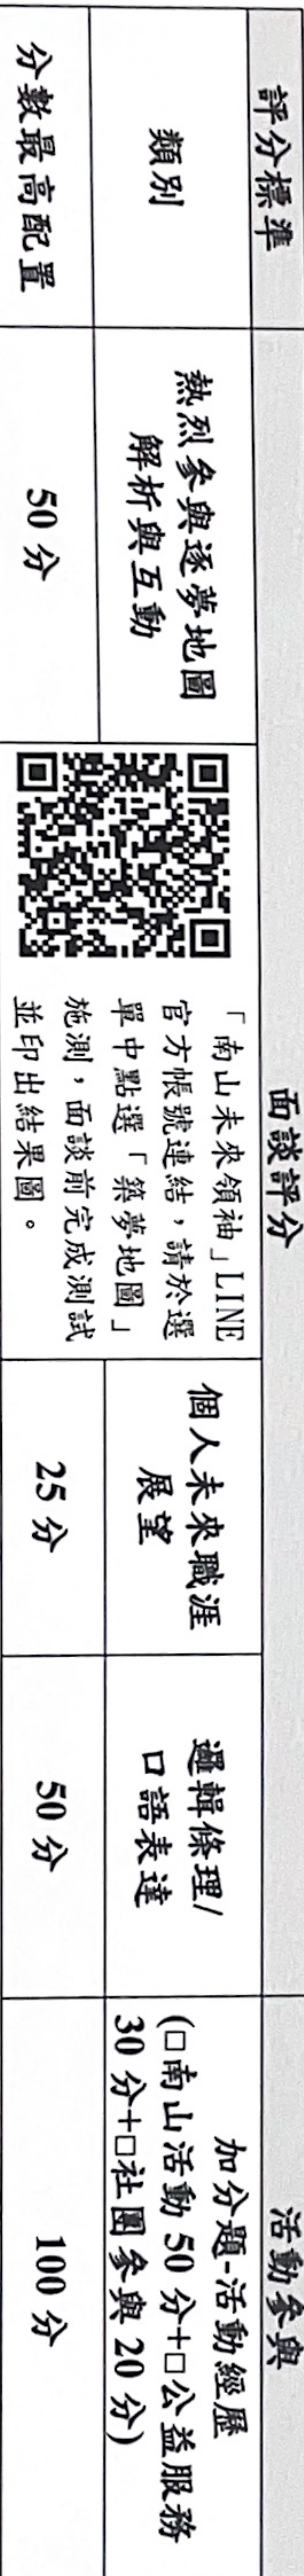 評分標準
面談評分
活動參與
類別
熱烈參與逐夢地圖
解析與互動
「南山未來領袖」LINE
官方帳號連結，請於選
單中點選「築夢地圖」
施測，面談前完成測試
並印出結果圖。
個人未來職涯
展望
邏輯條理/
口語表達
加分題-活動經歷
(□南山活動 50 分+□公益服務
30 分+□社團參與 20 分)
分數最高配置
50 分
25 分
50 分
100 分